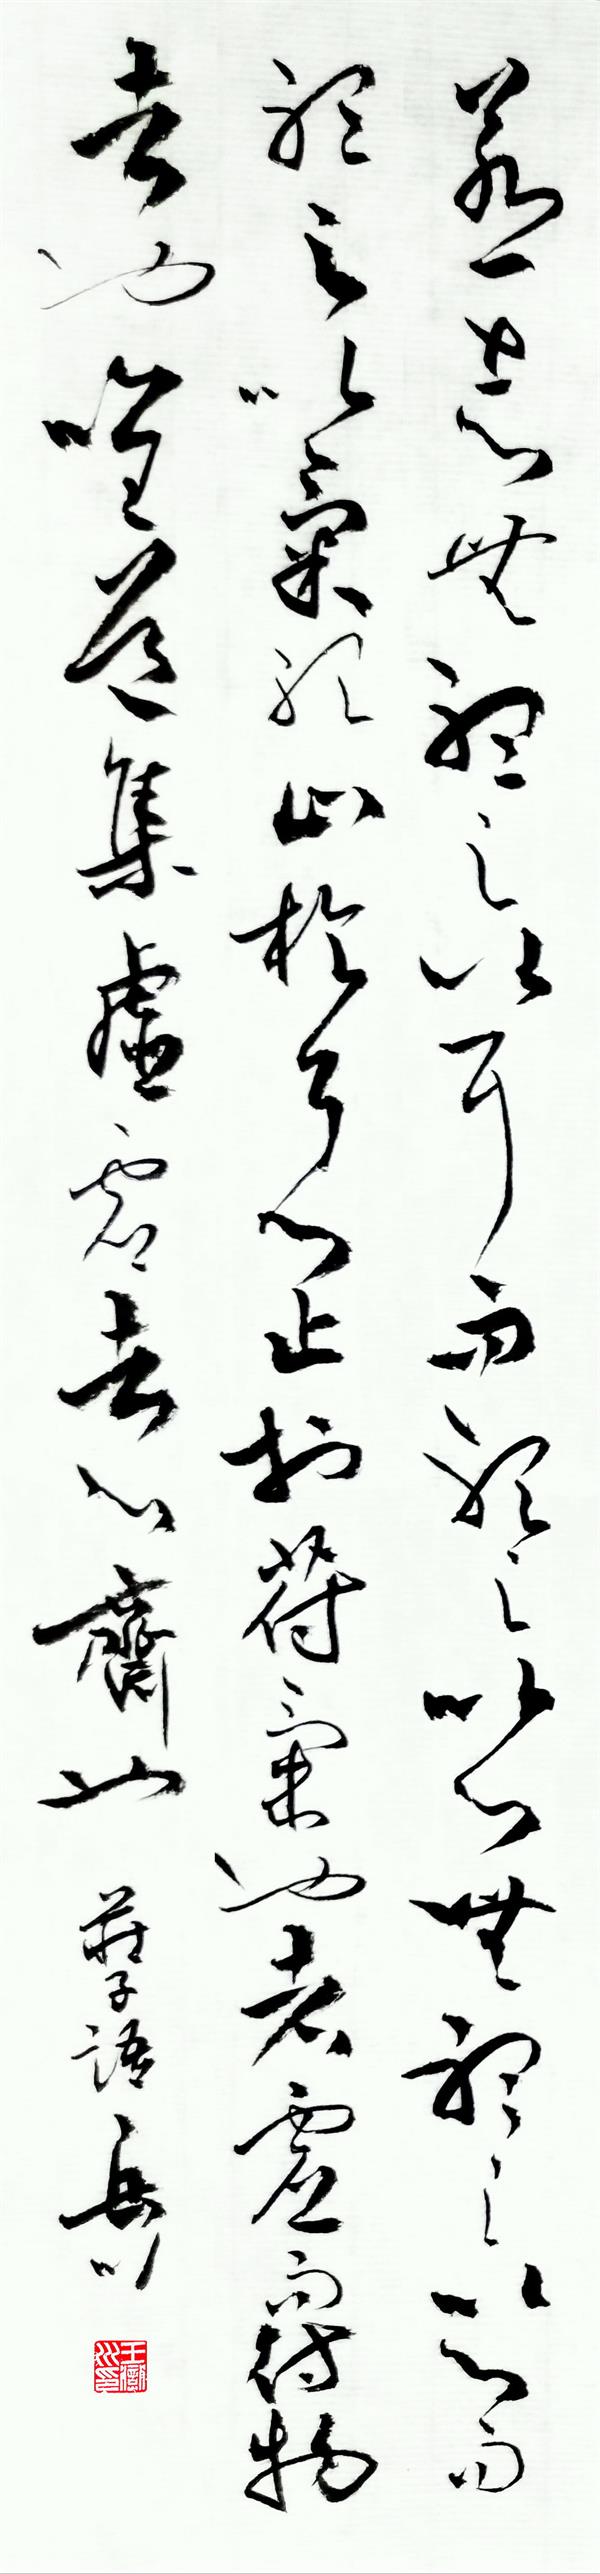 若一志無聽之以耳而聽之以心無聽之以心而
聽之以氣聽止於耳心止於符氣也者虛而待物
者也唯道集虛虛者心齋也
莊子語 岳川
王嶽川印